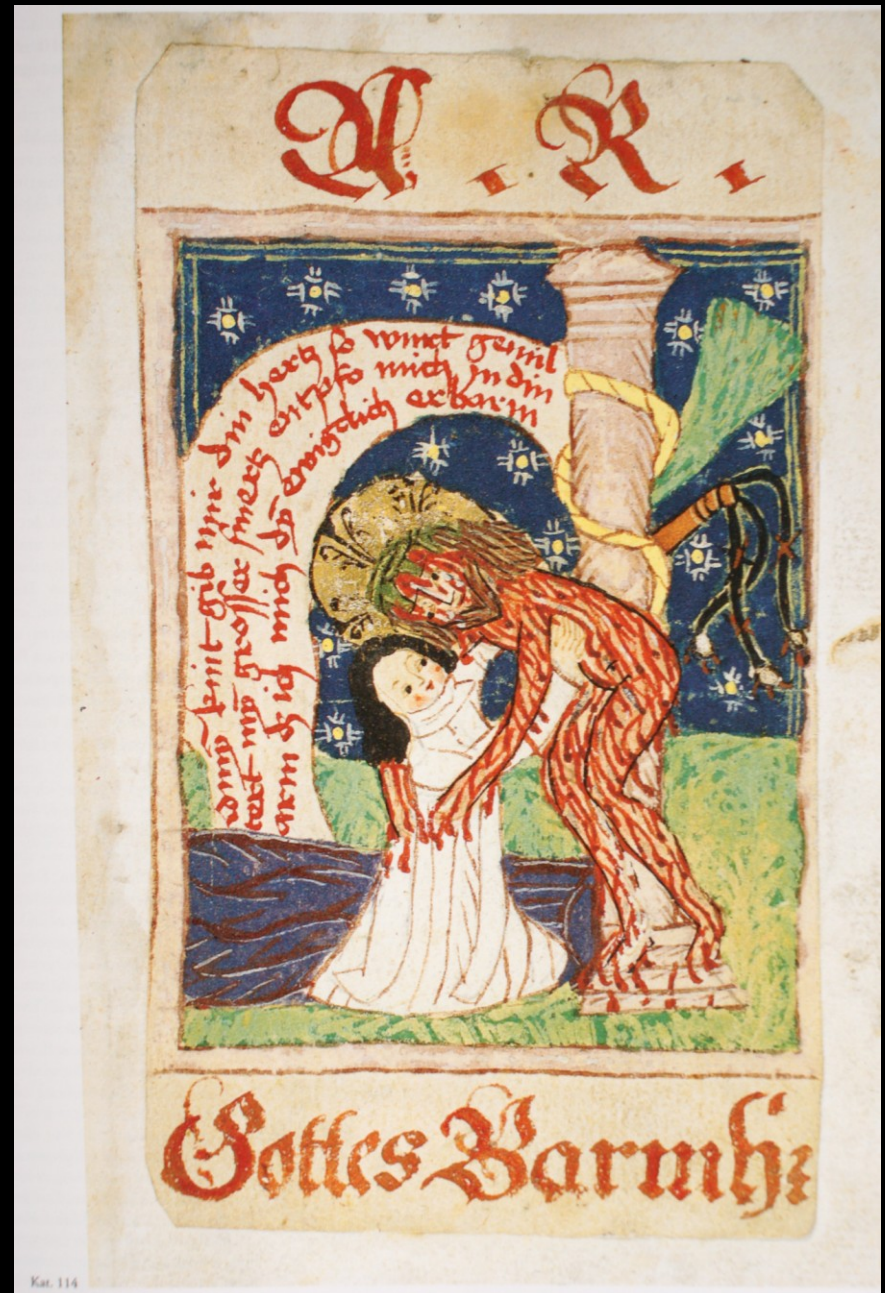 A . R .
kint gib mir din hertz so wirt gemil
tert mȳ grosser smertz enpfo mich jn din
arm dz ich mich dȳ ewigklich erbarm
Gottes Barmh:
Kat. 114